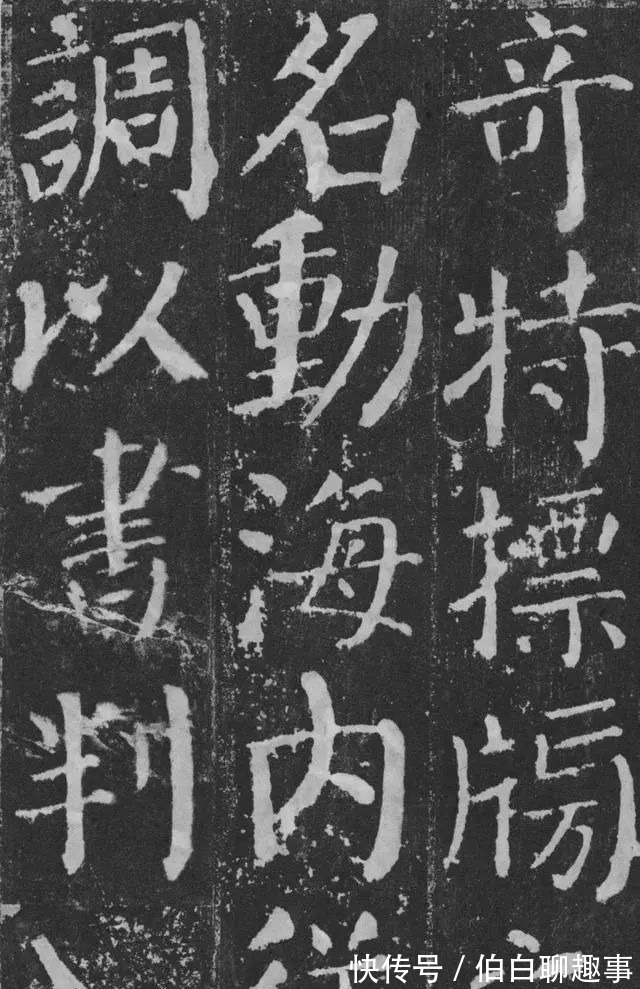 竒特摽牓
名動海内
調以書判
快传号 / 伯白聊趣事